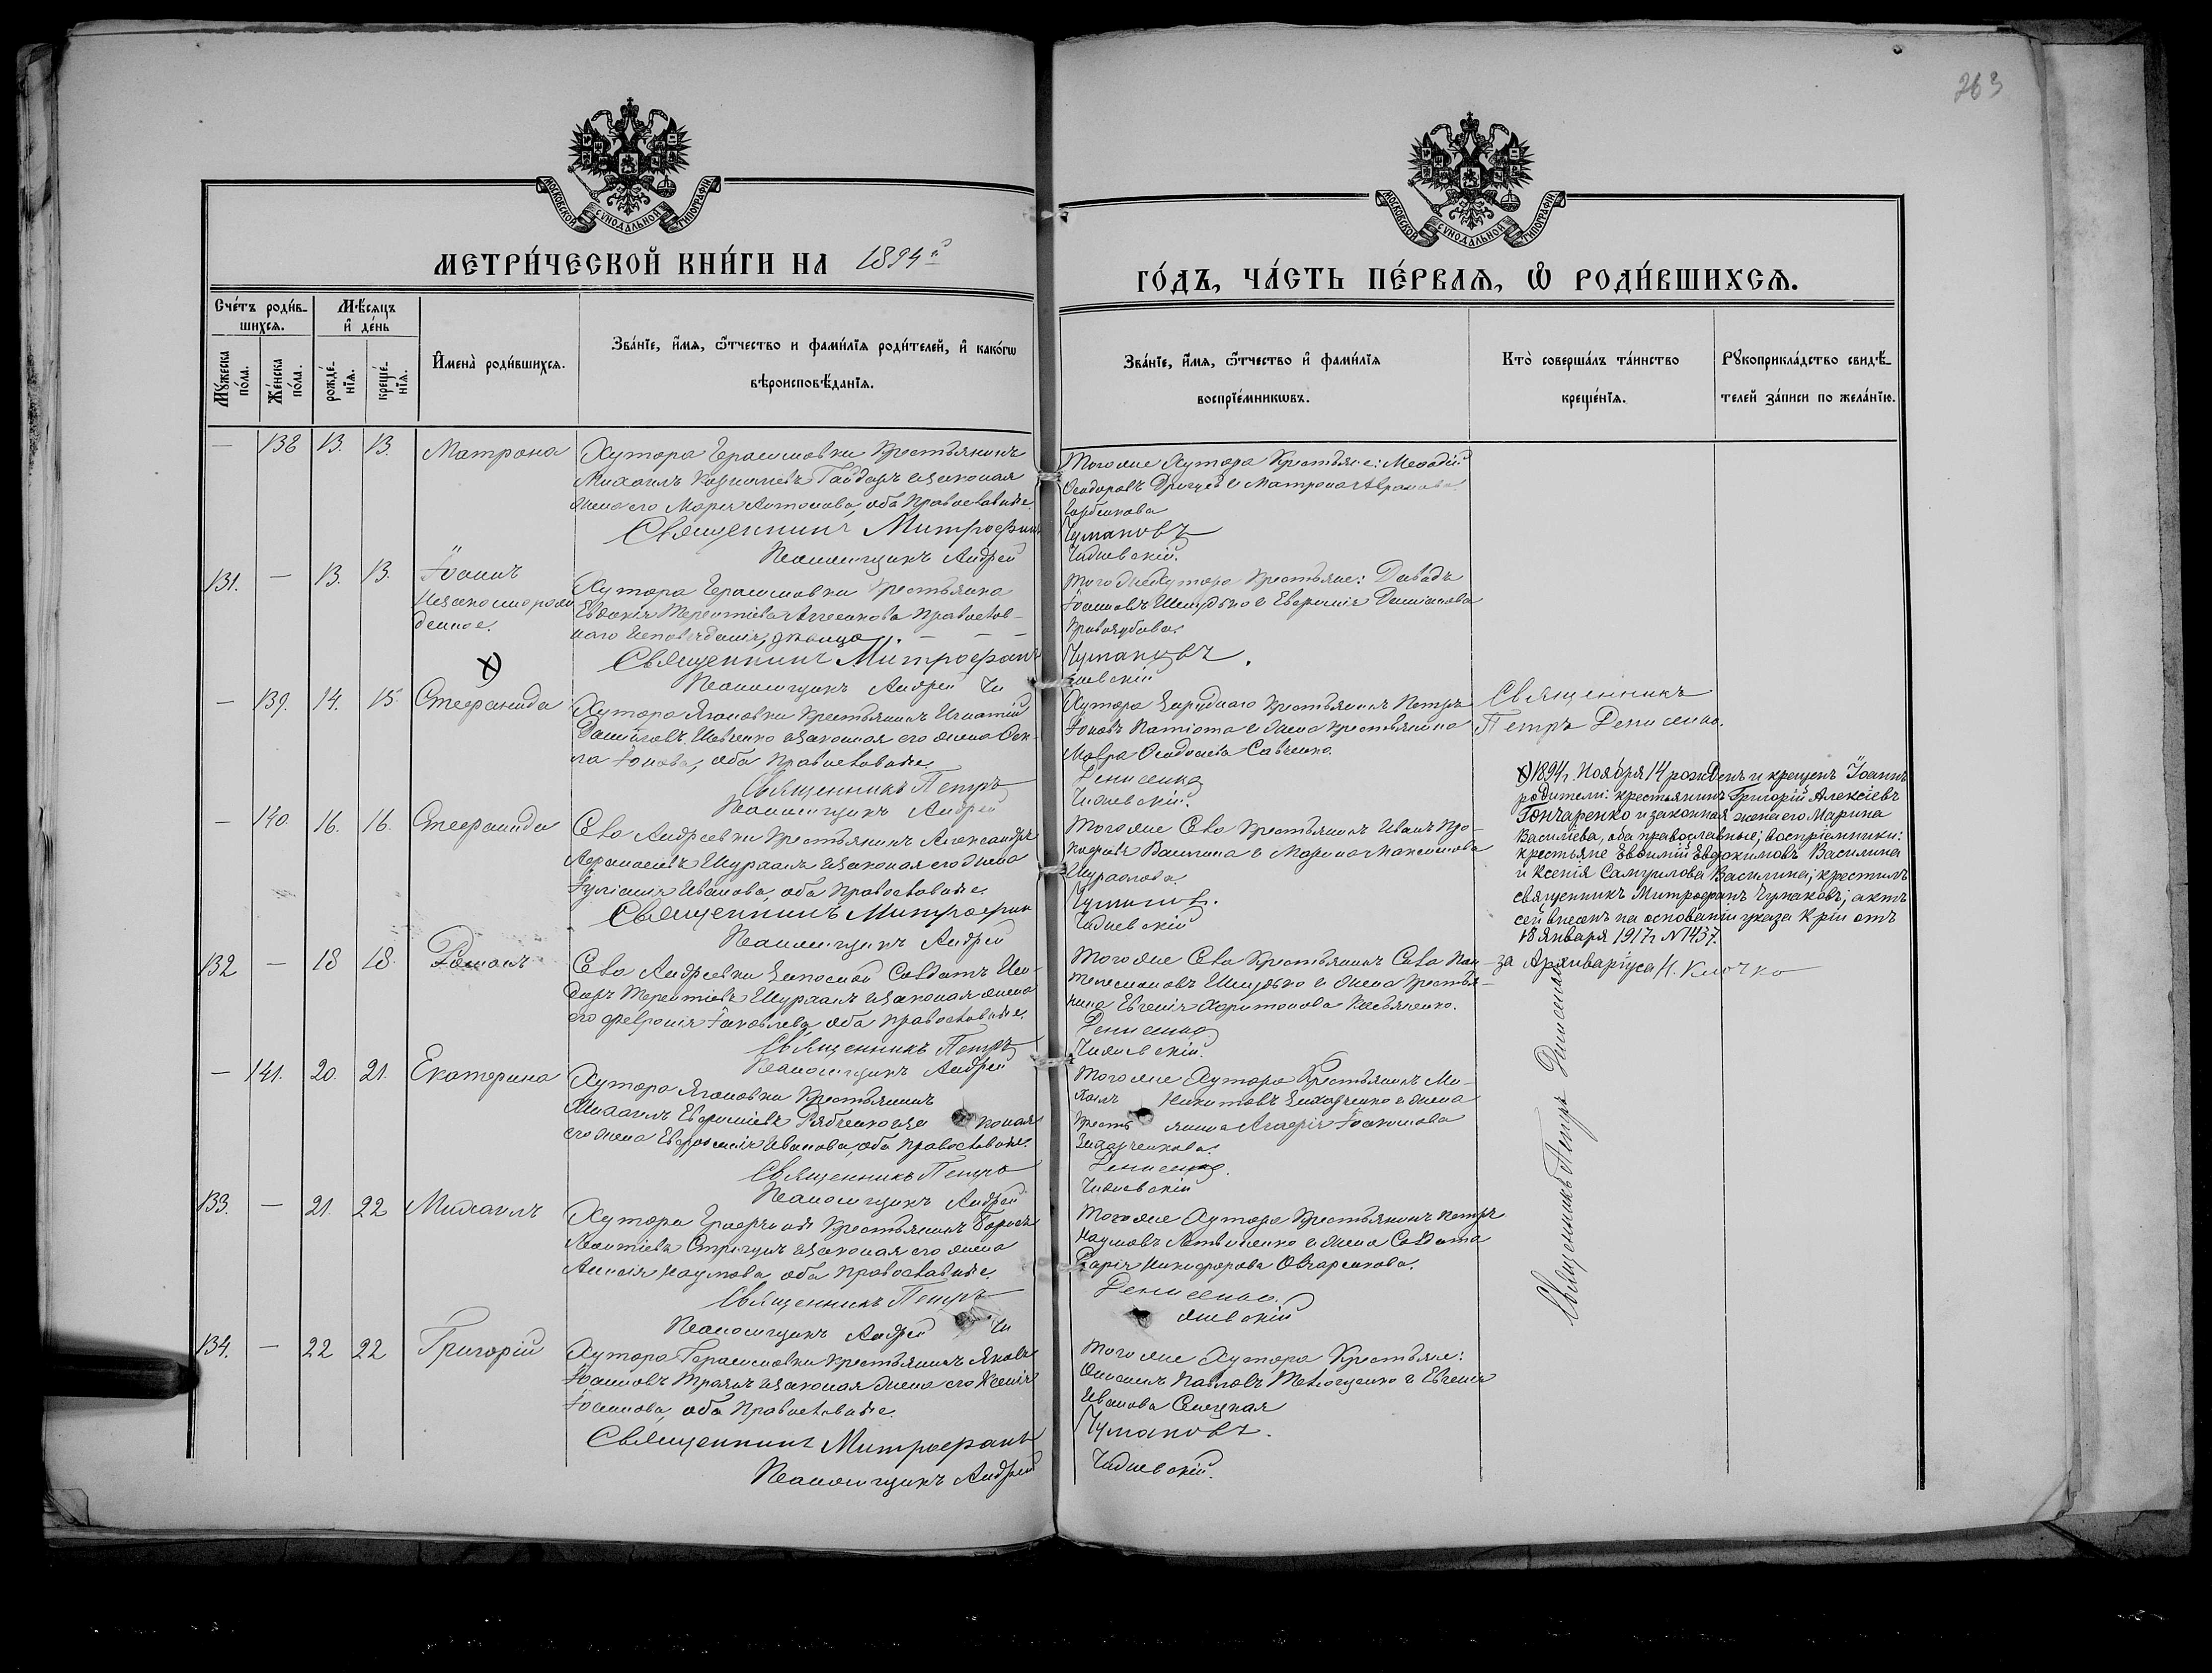 263
МОСКОВСКОЙ СУНОДАЛЬНОЙ ТИПОГРАФІИ.
МОСКОВСКОЙ СУНОДАЛЬНОЙ ТИПОГРАФІИ.
МЕТРИ́ЧЕСКОЙ КНИ́ГИ НА 1894й
ГО́ДЪ, ЧА́СТЬ ПЕ́РВАѦ, Ѡ РОДИ́ВШИХСѦ.
Сче́тъ роди́в-
шихсѧ.
Мѣ́сѧцъ
и҆ де́нь
Мꙋ́жеска
по́ла.
Же́нска
по́ла.
рожде́-
нїѧ.
креще́-
нїѧ.
И҆мена̀ роди́вшихсѧ.
Зва́нїе, и҆́мѧ, ѻ҆́тчество и фами́лїѧ роди́телей, и҆ како́гѡ
вѣроисповѣ́данїѧ.
Зва́нїе, и҆́мѧ, ѻ҆́тчество и҆ фами́лїѧ
воспрїе́мникѡвъ.
Кто̀ соверша́лъ та́инство
креще́нїѧ.
Рꙋкоприкла́дство свидѣ́-
телей за́писи по жела́нїю.
— 138 13. 13. Матрона
Хутора Герасимовки Крестьянинъ
Михаилъ Гайдаръ и законая
жена его Марія Антонова, оба Православные.
Священникъ Митрофанъ
Псаломщикъ Андрей
Того же Хутора Крестьяне: Меѳодій
Ѳеодоровъ и Матрона Аврамова
Чумаковъ
131. — 13. 13. Іоаннъ
Незаконорож
денное.
Хутора Герасимовки Крестьянка
Евдокія Терентіева Православ-
наго Исповѣданія, дѣвица. — — —
Священникъ Митрофанъ
Псаломщикъ Андрей
Того же Хутора Крестьяне: Давидъ
Іоанновъ Шепудько и Евфимія Даміанова
Чумаковъ.
— 139. 14. 15. Стефанида
Хутора Ягановки Крестьянинъ Игнатій
Даниловъ Шевченко и законая его жена Ѳек-
ла Іонова, оба Православные.
Священникъ Петръ
Псаломщикъ Андрей
Хутора Крестьянинъ Петръ
Іоновъ и жена Крестьянина
Мавра Ѳеодосіева Савченко.
Денисенко
Священникъ
Петръ Денисенко.
— 140. 16. 16. Стефанида
Села Андреевки Крестьянинъ Александръ
Аѳанасіевъ Шурхалъ и законая его жена
Іуліанія Иванова, оба Православные.
Священникъ Митрофанъ
Псаломщикъ Андрей
Того же Села Крестьянинъ Иванъ Про-
кофіевъ Василина и Марина Максимова
Чумаковъ.
х) 1894 г. Ноября 14 рожденъ и крещенъ Іоаннъ
родители: крестьянинъ Григорій Алексіевъ
Гончаренко и законная жена его Марина
Василіева, оба православные; воспріемники:
крестьяне Евѳимій Евдокимовъ Василина
и Ксенія Самуилова Василина; крестилъ
священникъ Митрофанъ Чумаковъ; актъ
сей внесенъ на основаніи указа К-ріи отъ
18 января 1917 г № 1437.
за Архиваріуса Н. Клочко
132 — 18 18. Романъ
Села Андреевки Запасной Солдатъ Иси-
доръ Терентіевъ Шурхалъ и законая жена
его Февронія Іаковлева, оба Православные.
Священникъ Петръ
Псаломщикъ Андрей
Того же Села Крестьянинъ Сава Пан-
телеимоновъ Шепудько и жена Крестья-
нина Евгенія Харитонова Касьяненко.
Денисенко
— 141. 20. 21. Екатерина
Хутора Ягановки Крестьянинъ
Михаилъ Евфиміевъ Рябченко и за коная
его жена Евфросинія Иванова, оба Православные.
Священникъ Петръ
Псаломщикъ Андрей
Того же Хутора Крестьянинъ Ми-
хаилъ Никитовъ Захарченко и жена
Кресть янина Іоакимова
Захарченкова.
Денисенко.
133. — 21. 22 Михаилъ
Хутора Крестьянинъ Борисъ
Леонтіевъ Стригунъ и законая его жена
Анисія Наумова, оба Православные.
Священникъ Петръ
Псаломщикъ Андрей
Того же Хутора Крестьянинъ Петръ
Наумовъ Литвиненко и жена Солдата
Дарія Никифорова Овчаренкова.
Денисенко.
134. — 22 22 Григорій
Хутора Герасимовки Крестьянинъ Яковъ
Іоанновъ и законая жена его Ксенія
Іоаннова, оба Православные.
Священникъ Митрофанъ
Псаломщикъ Андрей
Того же Хутора Крестьяне:
Онисимъ Павловъ и Евгенія
Иванова
Чумаковъ.
Священникъ Петръ Денисенко